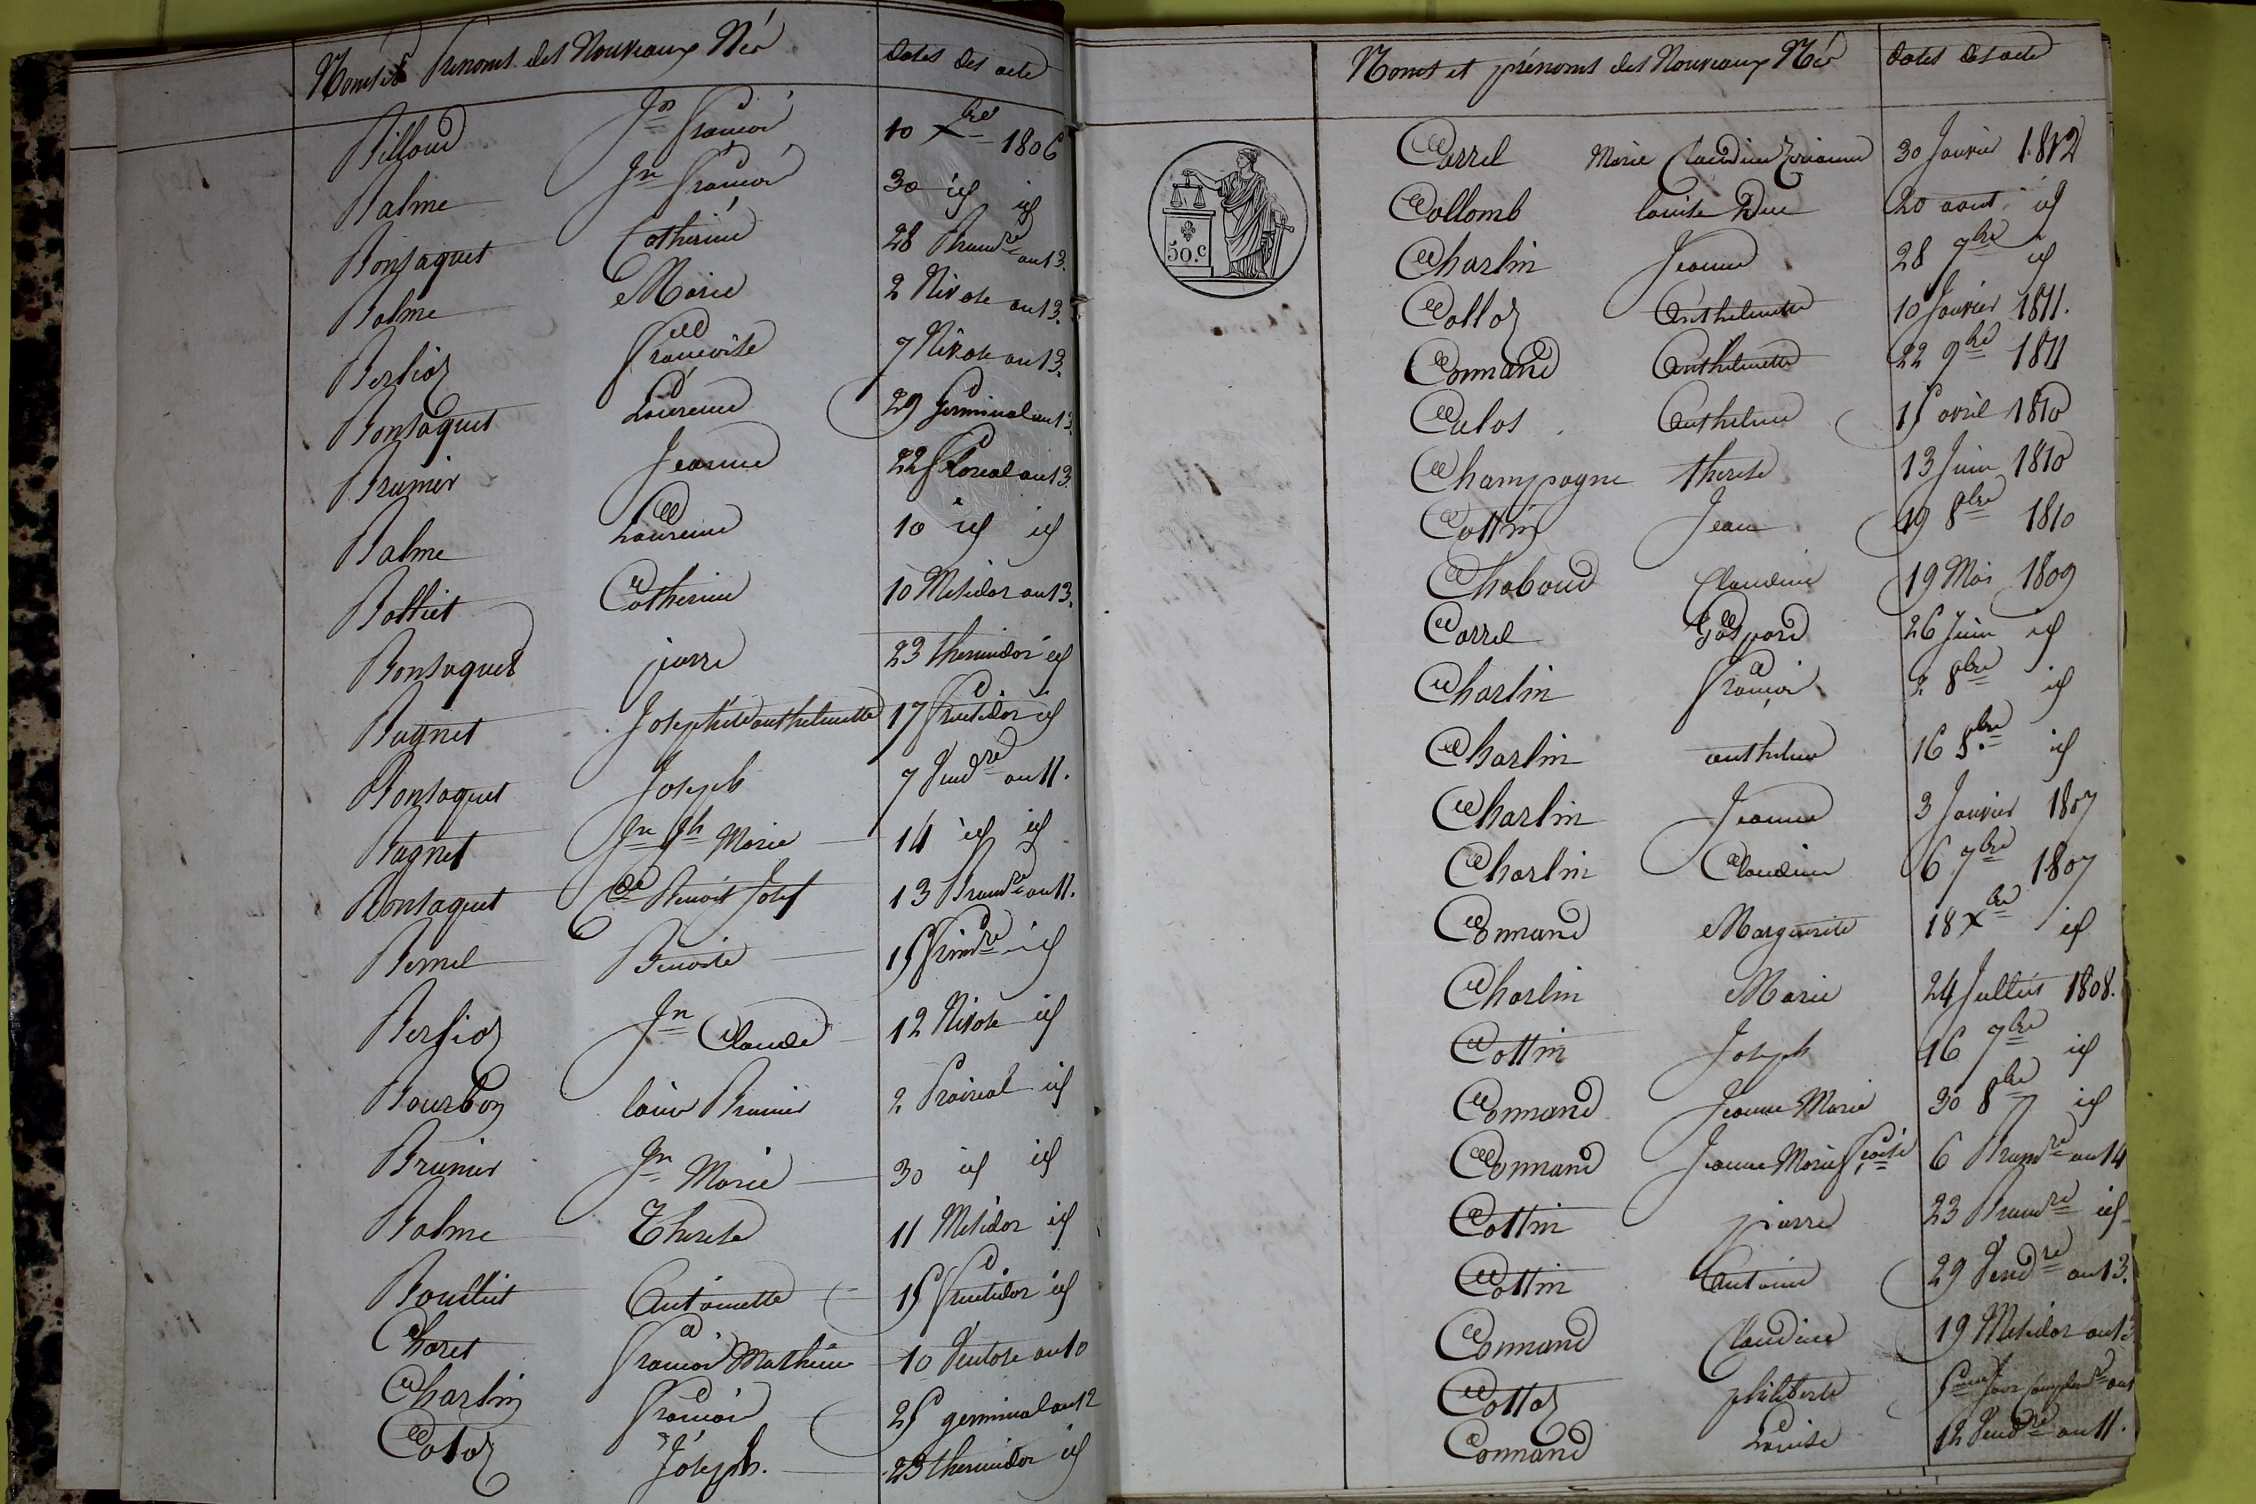 Noms et Prénoms des Nouveaux Nés Dates des acte
Billoud Jn François 10 Xbre 1806
Balme Jn François 30 id id
Bonsaquet Catherine 28 Brumre an 13.
Balme Marie 2 Nivose an 13.
Berlioz Françoise 7 Nivose an 13.
Bonsaquet Laurence 29 Germinal an 13.
Brunier Jeanne 22 Floreal an 13.
Balme Laurence 10 id id
Bolliet Catherine 10 Mesidor an 13.
Bonsaquet pierre 23 thermidor id
Bugnet Josephte anthelmette 17 Fructidor id
Bonsaquet Joseph 7 Vendre an 11.
Bugnet Jn Jh Marie 14 id id
Bonsaquet Cde Benoit Josef 13 Brumre an 11.
Bernel Benoite 15 Frimre id
Berlioz Jn Claude 12 Nivose id
Bourbon louis Brunier 2 Prairial id
Brunier Jn Marie 30 id id
Balme Therese 11 Mesidor id
Boulliet Antoinette 15 Fructidor id
Charet François Mathieu 10 Ventose an 10
Charlin François 25 germinal an 12
Cotoz Joseph. 23 thermidor id
Noms et prénoms des Nouveaux Nés Dates des acte
50.c
Carrel Marie Claudine 30 Janvier 1812
Collomb louise 20 aout id
Charlin Jeanne 28 7bre id
Colloz Anthelmette 10 Janvier 1811.
Connand Anthelmette 22 9bre 1811
Calos Anthelme 15 avril 1810
Champagne therese 13 Juin 1810
Cottin Jean 19 8bre 1810
Chaboud Claudine 19 Mai 1809
Carrel Gaspard 26 Juin id
Charlin François 2 8bre id
Charlin anthelme 16 8bre id
Charlin Jeanne 3 Janvier 1807
Charlin Claudine 6 7bre 1807
Connand Marguerite 18 Xbre id
Charlin Marie 24 Jullet 1808.
Cottin Joseph 16 7bre id
Connand Jeanne Marie 30 8bre id
Connand Jeanne Marie Fcoise 6 Brumre an 14
Cottin pierre 23 Brumre id
Cottin Antoine 29 Vendre an 13.
Connand Claudine 19 Mesidor an 13
Cottoz philiberte 5me Jour
Connand Louise 12 Vendre an 11.